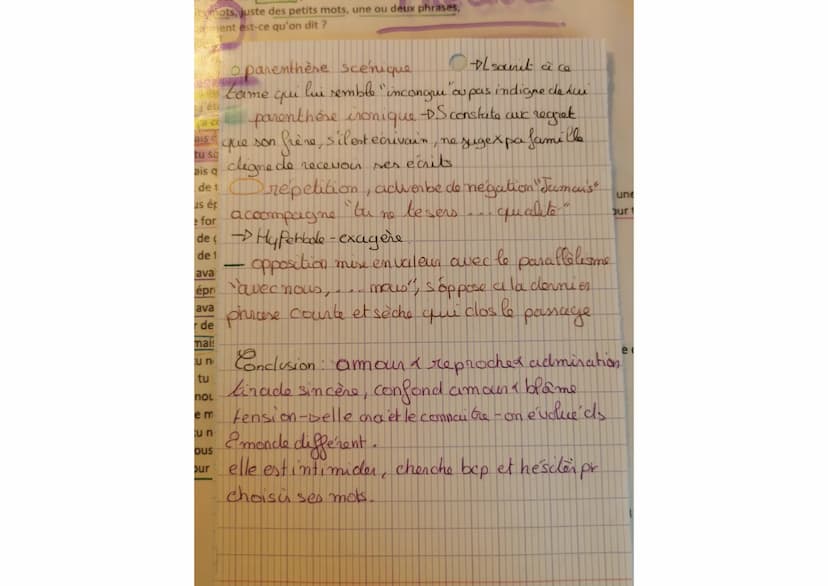 mots, juste des petits mots, une ou deux phrases,
ent est-ce qu'on dit ?
parenthère scénique → L sourit à ce
terme qui lui semble "incongru" ou pas indigne de lui
parenthése ironique → S constate avc regret
que son frère, s'il est écrivain, ne juge pa famille
digne de recevoir ses écrits
répétition, adverbe de négation "Jamais"
accompagne "tu ne te sers ... qualité"
→ Hyperbole - exagère
— opposition mise en valeur avec le parallélisme
"avec nous, ... mais", s'oppose a la dernière
phrase courte et sèche qui clos le passage
Conclusion : amour & reproches & admiration
tirade sincère, confond amour & blâme
tension - elle croit le connaitre - on évolué ds
2 monde différent.
elle est intimider, cherche bcp et hésiter pr
choisir ses mots.